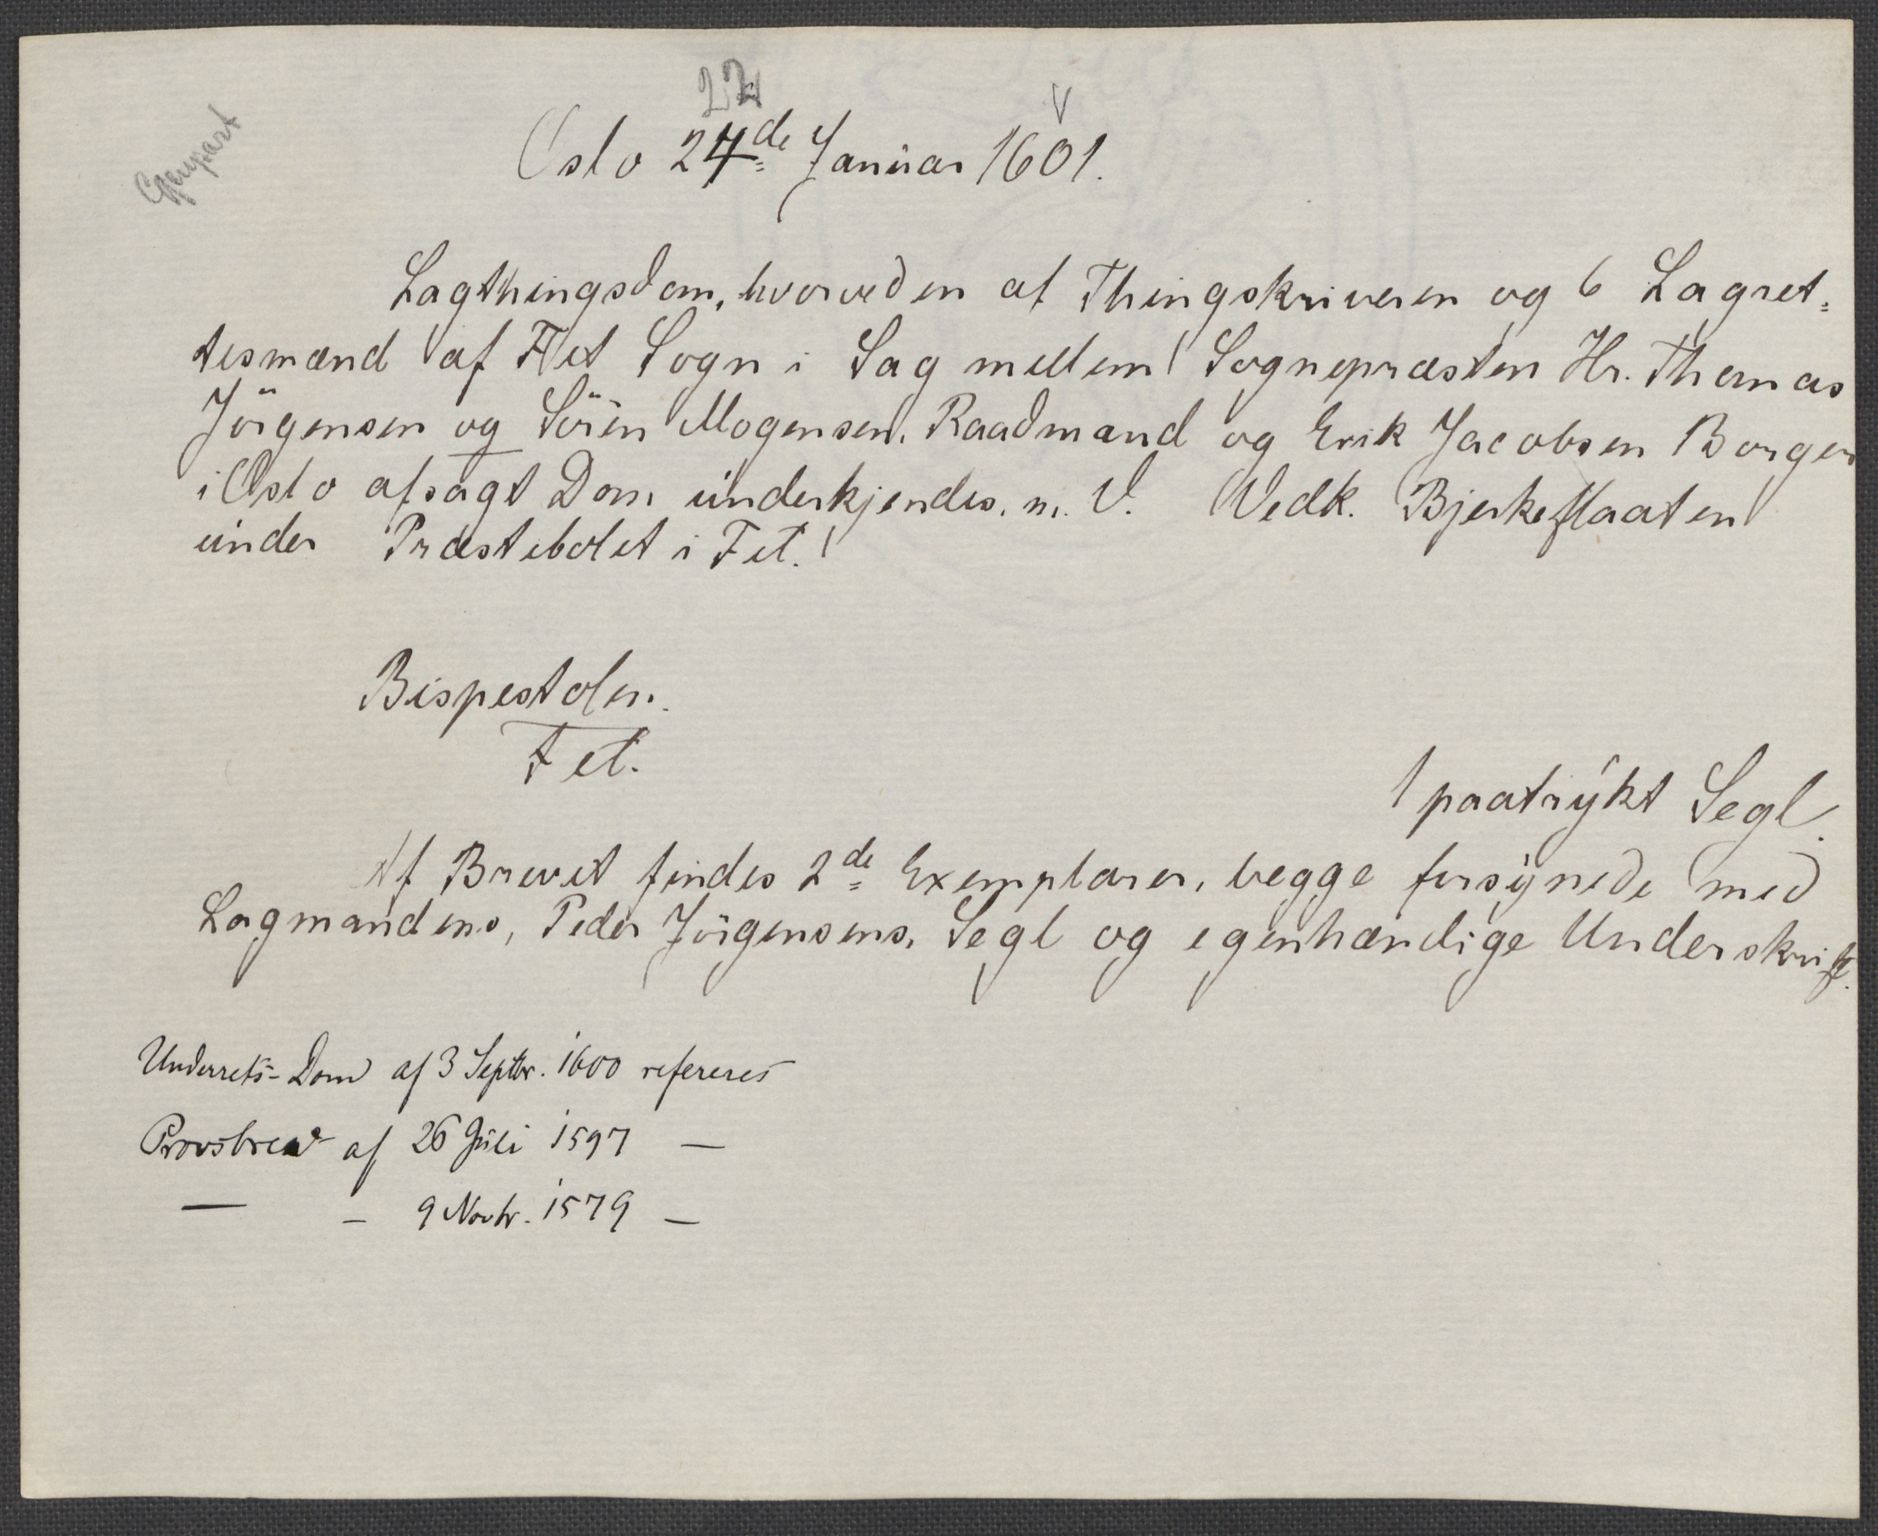 Gjenpart
22
Oslo 24de Januar 1601.
Lagthingsdom, hvorved en af Thingskriveren og 6 Lagret-
tesmænd af Fet Sogn i Sag mellem Sognepræsten Hr. Thomas
Jörgensen og Sören Mogensen, Raadmand og Erik Jacobsen Borger
i Oslo afsagt Dom underkjendes. m. V. Vedk. Bjerkeflaaten
under Præstebolet i Fet.
Bispestolen.
Fet.
1 paatrykt Segl.
Af Brevet findes 2de Exemplarer, begge forsynede med
Lagmandens, Peder Jörgensens, Segl og egenhændige Underskrift.
Underrets-Dom af 3 Septbr. 1600 refereres
Provsbrev af 26 Juli 1597 —
— - 9 Novbr. 1579 —